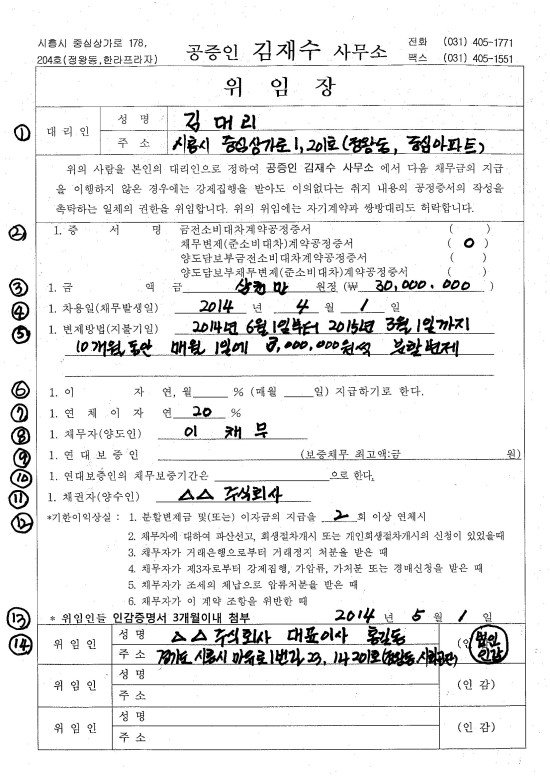 시흥시 중심상가로 178,
204호(정왕동,한라프라자)
공증인 김재수 사무소
전화 (031) 405-1771
팩스 (031) 405-1551
위 임 장
① 대리인 성 명 김대리
주 소 시흥시 중심상가로 1, 201호 (정왕동, 중심아파트)
위의 사람을 본인의 대리인으로 정하여 공증인 김재수 사무소 에서 다음 채무금의 지급
을 이행하지 않은 경우에는 강제집행을 받아도 이의없다는 취지 내용의 공정증서의 작성을
촉탁하는 일체의 권한을 위임합니다. 위의 위임에는 자기계약과 쌍방대리도 허락합니다.
② 1. 증 서 명 금전소비대차계약공정증서 ( )
채무변제(준소비대차)계약공정증서 ( O )
양도담보부금전소비대차계약공정증서 ( )
양도담보부채무변제(준소비대차)계약공정증서 ( )
③ 1. 금 액 금 삼천만 원정 (₩ 30,000,000 )
④ 1. 차용일(채무발생일) 2014 년 4 월 1 일
⑤ 1. 변제방법(지불기일) 2014년 6월 1일부터 2015년 3월 1일까지
10개월 동안 매월 1일에 3,000,000원씩 분할변제
⑥ 1. 이 자 연, 월 % (매월 일) 지급하기로 한다.
⑦ 1. 연 체 이 자 연 20 %
⑧ 1. 채무자(양도인) 이 채무
⑨ 1. 연 대 보 증 인 (보증채무 최고액:금 원)
⑩ 1. 연대보증인의 채무보증기간은 으로 한다.
⑪ 1. 채권자(양수인) △△ 주식회사
⑫ *기한이익상실 : 1. 분할변제금 및(또는) 이자금의 지급을 2 회 이상 연체시
2. 채무자에 대하여 파산선고, 회생절차개시 또는 개인회생절차개시의 신청이 있었을때
3. 채무자가 거래은행으로부터 거래정지 처분을 받은 때
4. 채무자가 제3자로부터 강제집행, 가압류, 가처분 또는 경매신청을 받은 때
5. 채무자가 조세의 체납으로 압류처분을 받은 때
6. 채무자가 이 계약 조항을 위반한 때
⑬ * 위임인들 인감증명서 3개월이내 첨부 2014 년 5 월 1 일
⑭ 위 임 인 성 명 △△ 주식회사 대표이사 홍길동 (인 법인인감
주 소 경기도 시흥시 마유로1번길 23, 14 201호 (정왕동, 시화공단)
위 임 인 성 명 (인 감)
주 소
위 임 인 성 명 (인 감)
주 소